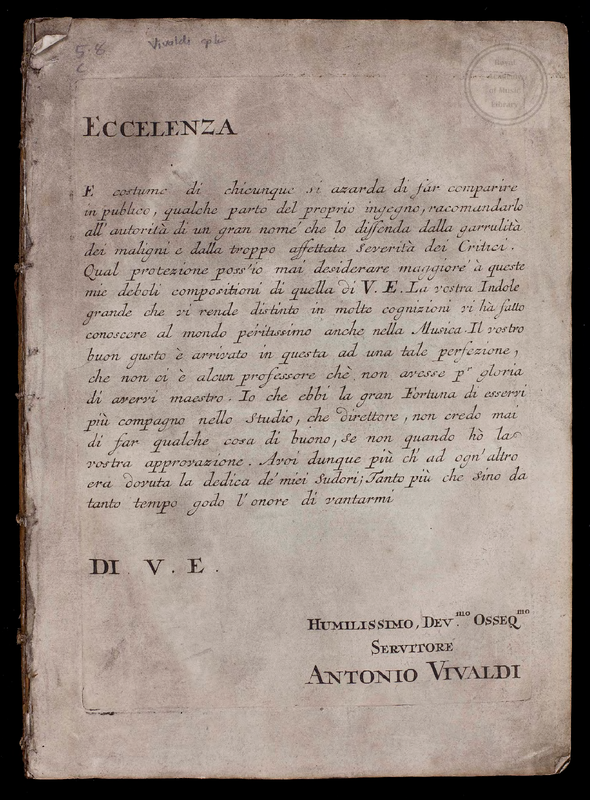 5·8
Vivaldi op 4
Royal
Academy
of Music
Library
ECCELENZA
E costume di chiunque si azarda di far comparire
in publico, qualche parto del proprio ingegno, racomandarlo
all' autorità di un gran nomé che lo diffenda dalla garrulità
dei maligni e dalla troppo affettata severità dei Critici.
Qual protezione poss'io mai desiderare maggioré à queste
mie deboli compositioni di quella di V. E. La vostra Indole
grande che vi rende distinto in molte cognizioni vi hà fatto
conoscere al mondo péritissimo anche nella Musica. Il vostro
buon gusto è arrivato in questa ad una tale perfezione,
che non ci è alcun professore chè non avesse pr gloria
di avervi maestro. Io che ebbi la gran Fortuna di esservi
più compagno nello Studio, che direttore, non credo mai
di far qualche cosa di buono, se non quando hò la
vostra approvazione. Avoi dunque più ch' ad ogn' altro
era dovuta la dedica dé miei Sudori; Tanto più che sino da
tanto tempo godo l'onore di vantarmi
DI V. E.
HUMILISSIMO, DEV.mo OSSEQmo
SERVITORÉ
ANTONIO VIVALDI